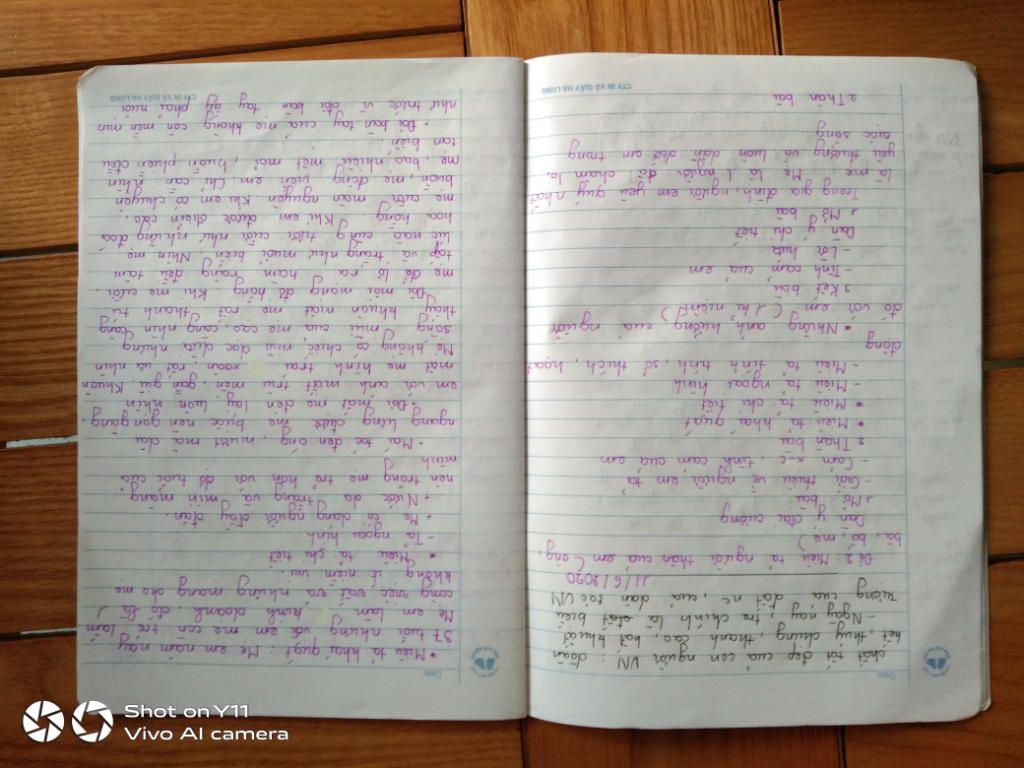 Date:
chất tốt đẹp của con người VN : đoàn
kết, thuỷ chung, thanh cao, bất khuất
- Ngày nay tre chính là biểu
tượng của đất nc, của dân tộc VN
11/6/2020
Đề 2: Miêu tả người thân của em (ông,
bà, bố, mẹ)
Dàn ý đại cương
1 Mở bài
- Giới thiệu về người em tả
- Cảm xc, tình cảm của em
2 Thân bài
• Miêu tả khái quát
• Miêu tả chi tiết
- Miêu tả ngoại hình
- Miêu tả tính tình, sở thích, hoạt
động
• Những ảnh hưởng của người
đó với em (1 kỉ niệm)
3 Kết bài
- Tình cảm của em
- Lời hứa
Dàn ý chi tiết
1 Mở bài
Trong gia đình, người em yêu quý nhất
là mẹ em. Mẹ là 1 người rất chăm lo,
yêu thương và luôn dẫn dắt em trong
cuộc sống
2 Thân bài
CTY IN VÀ GIẤY HẠ LONG
Date:
• Miêu tả khái quát: Mẹ em năm nay
37 tuổi nhưng với em mẹ còn trẻ lắm
Mẹ em làm kinh doanh, đó là 1
công việc vất vả nhưng mang cho mẹ
không ít niềm vui
• Miêu tả chi tiết
- Tả ngoại hình
+ Mẹ có dáng người đầy đặn.
+ Nước da trắng và mịn màng
nên trông mẹ trẻ hơn với độ tuổi của
mình
+ Mái tóc đen óng, mượt mà dài
ngang lưng được mẹ búi nên gọn gàng,
Đôi mắt mẹ đen láy luôn nhìn
em với ánh mắt trìu mến, gần gũi. Khuôn
mặt mẹ hình trái xoan rất ưa nhìn
Mẹ không có chiếc mũi dọc dừa nhưng
sống mũi của mẹ cao, càng nhìn càng
thấy khuôn mặt mẹ rất thanh tú
Đôi môi mỏng đỏ hồng. Khi mẹ cười
mẹ để lộ ra hàm răng đều tăm
tắp và trắng như muối biển. Nhìn mẹ
lúc nào cũng tươi cười như những đoá
hoa hồng. Khi em được điểm cao,
mẹ cười mãn nguyện. Khi em có chuyện
buồn, mẹ động viên em. Chỉ cần nhìn
mẹ, bao nhiêu mệt mỏi, buồn phiền đều
tan biến
- Đôi bàn tay của mẹ không còn mềm mịn
như trước vì đôi bàn tay ấy phải nuôi
CTY IN VÀ GIẤY HẠ LONG
Shot on Y11
Vivo AI camera